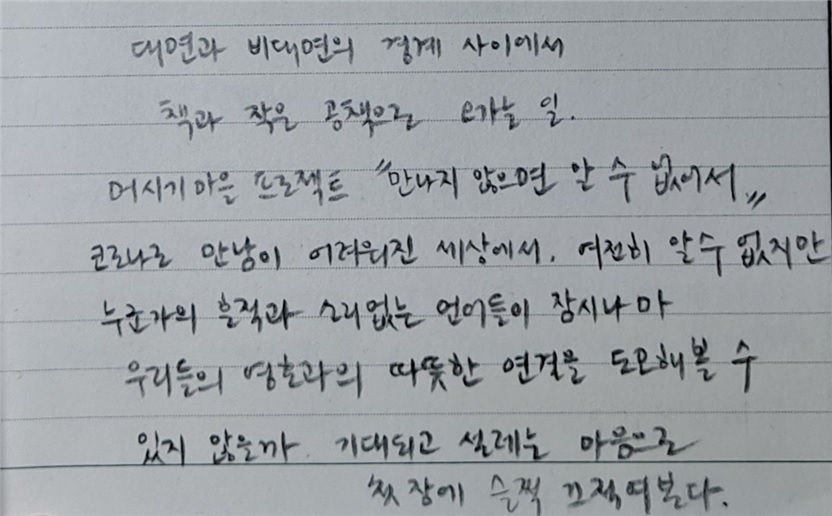 대면과 비대면의 경계 사이에서
책과 작은 공책으로 오가는 일.
머시기마을 프로젝트 "만나지 않으면 알 수 없어서"
코로나로 만남이 어려워진 세상에서, 여전히 알 수 없지만
누군가의 흔적과 소리없는 언어들이 잠시나마
우리들의 영혼과의 따뜻한 연결을 도모해볼 수
있지 않을까. 기대되고 설레는 마음으로
첫 장에 슬쩍 끄적여본다.